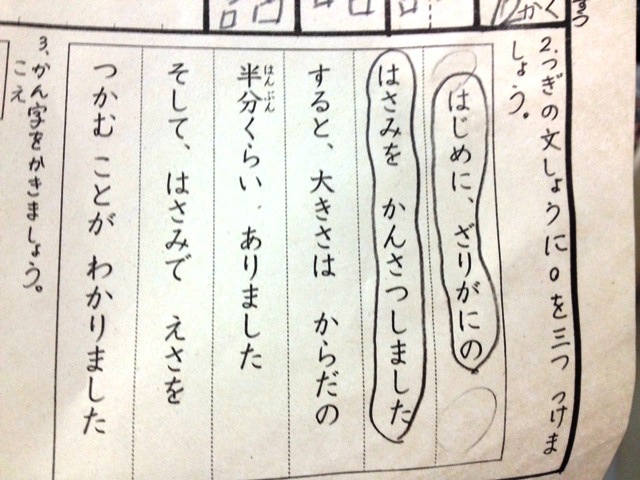 2.つぎの文しょうに。を三つ つけま
しょう。
はじめに、ざりがにの
はさみを かんさつしました
すると、大きさは からだの
半分くらい ありました
はんぶん
そして、はさみで えさを
つかむ ことが わかりました
3.かん字をかきましょう。
こえ